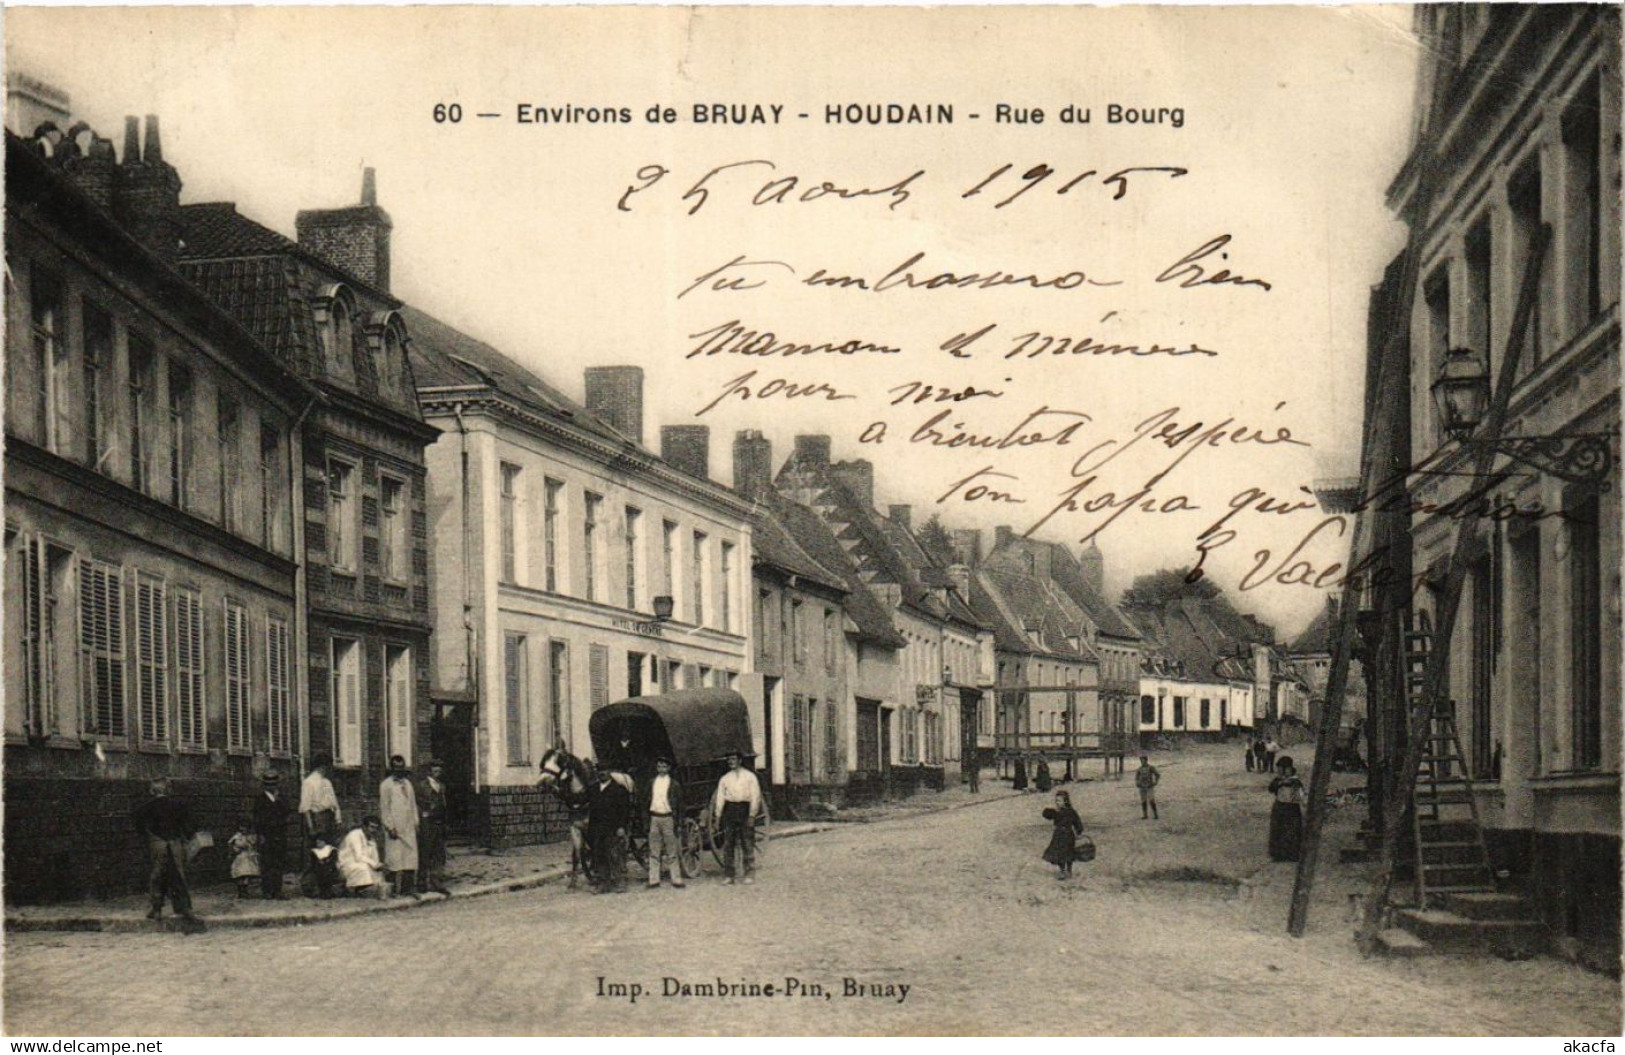 60 — Environs de BRUAY - HOUDAIN - Rue du Bourg
25 Aout 1915
tu embrassera bien
Maman et mémère
pour moi
a bientot J'espére
ton papa qui
E Vacher
HOTEL DU CENTRE
Imp. Dambrine-Pin, Bruay
www.delcampe.net
akacfa